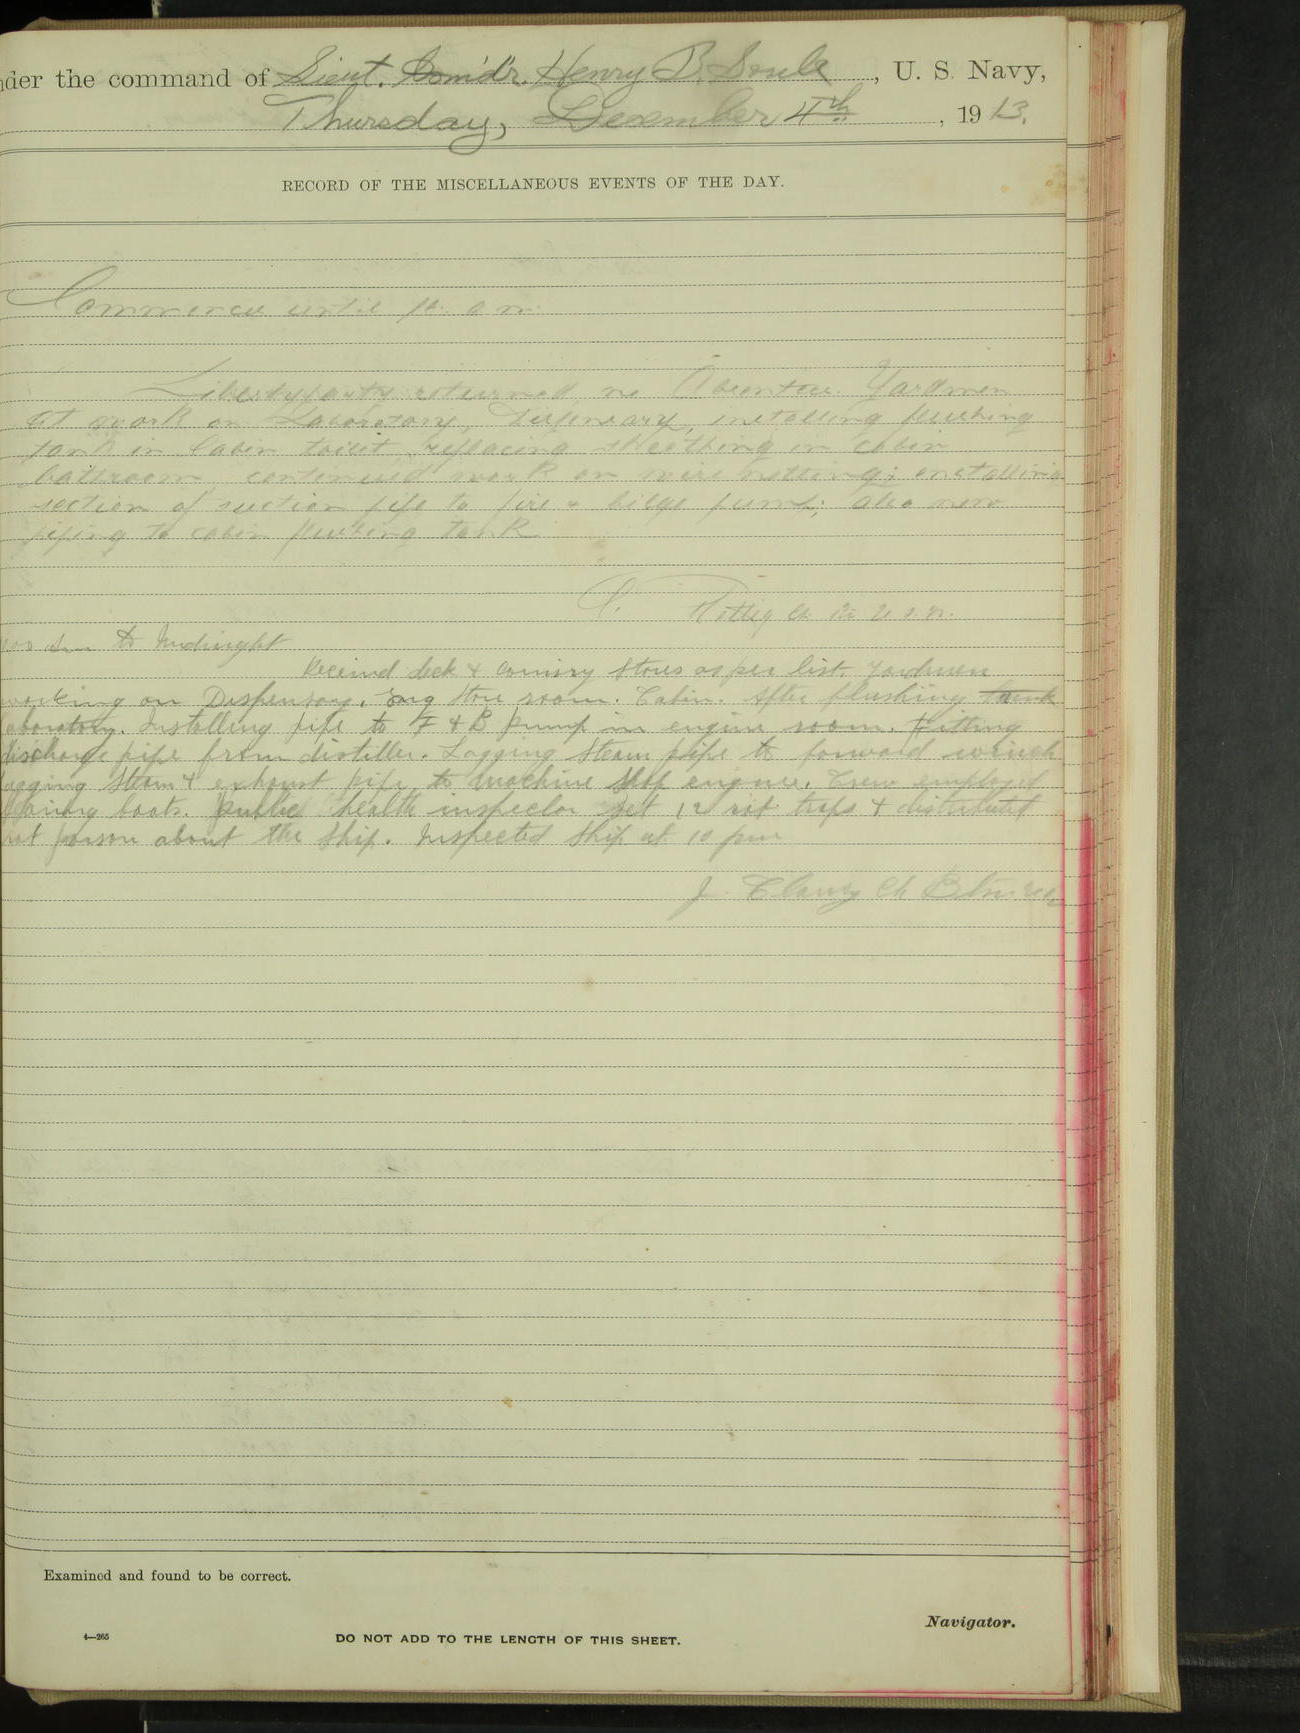 nder the command of Lieut. Com'd'r. Henry B. Soule, U. S. Navy,
Thursday, December 4th, 1913.
RECORD OF THE MISCELLANEOUS EVENTS OF THE DAY.
Commence until a m.
Liberty party returned, no Absentees. Yardmen
at work on Laboratory, Dispensary, installing flushing
tank in Cabin toilet, replacing sheathing in cabin
bathroom, continued work on wire netting; installing
section of suction pipe to fire & bilge pump; also new
piping to cabin flushing tank
Rettig U.S.N.
to Midnight
Received deck & Comisry Stores as per list. Yardmen
working on Dispensary, Eng Store room. Cabin. After flushing tank
aboratory. Installing pipe to F & B pump in engine room. Fitting
discharge pipe from distiller. Lagging steam pipe to forward winch
agging steam & exhaust pipe to machine shop engine. Crew employed
boats. Public health inspector set 12 rat traps & distributed
rat poison about the ship. Inspected ship at 10 pm
J. Clancy Ch
Examined and found to be correct.
Navigator.
4—265
DO NOT ADD TO THE LENGTH OF THIS SHEET.